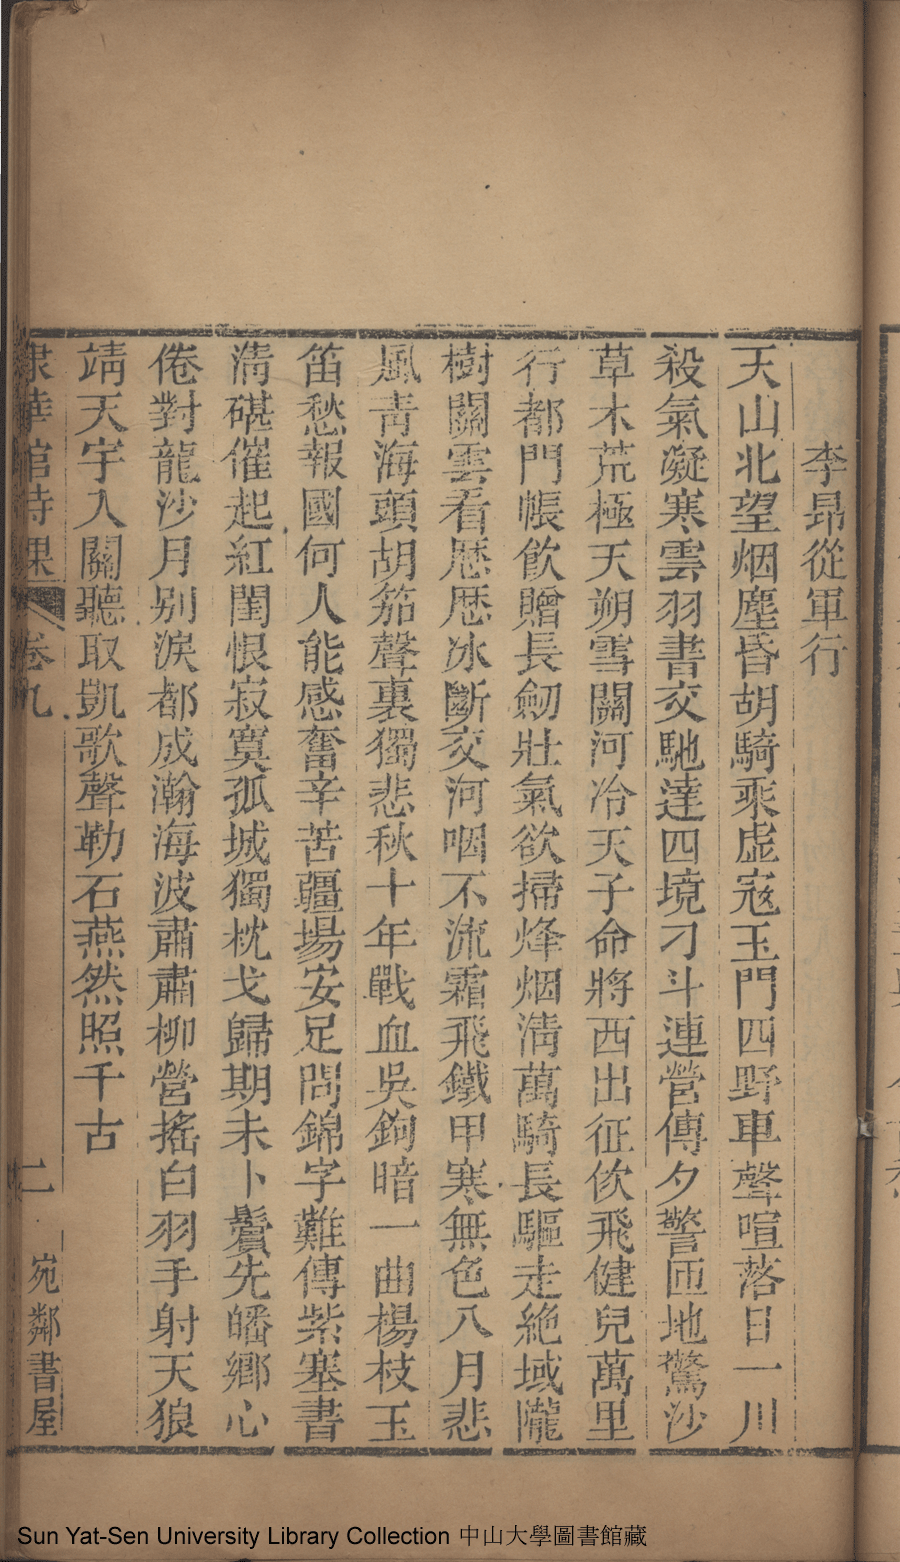 李昂從軍行
天山北望烟塵昏胡騎乘虛寇玉門四野車聲喧落日一川
殺氣凝寒雲羽書交馳達四境刁斗連營傳夕警匝地驚沙
草木荒極天朔雪關河冷天子命將西出征佽飛健兒萬里
行都門帳飲贈長劒壯氣欲掃烽烟淸萬騎長驅走絶域隴
樹關雲看厯厯冰斷交河咽不流霜飛鐵甲寒無色八月悲
風靑海頭胡笳聲裏獨悲秋十年戰血吳鉤暗一曲楊枝玉
笛愁報國何人能感奮辛苦疆場安足問錦字難傳紫塞書
淸碪催起紅閨恨寂寞孤城獨枕戈歸期未卜鬢先皤鄉心
倦對龍沙月别淚都成瀚海波肅肅柳營搖白羽手射天狼
靖天宇入關聽取凱歌聲勒石燕然照千古
棣華館詩課
卷九
二
宛鄰書屋
Sun Yat-Sen University Library Collection 中山大學圖書館藏